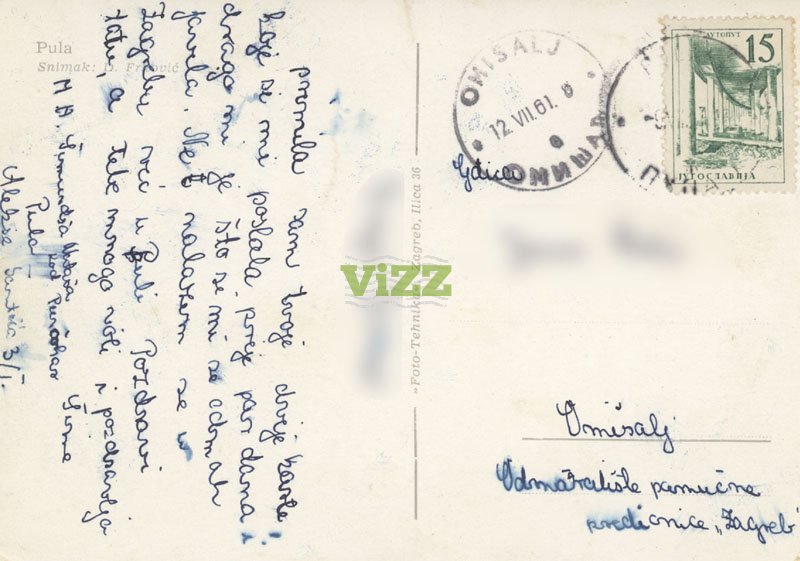 Pula
Snimak: D.
primila sam tvoje dvije karte
koje si mi poslala prije par dana i
drago mi je što si mi se odmah
javila. Ne nalazim se u
Zagrebu već u Puli. Pozdravi
tatu, a tebe mnogo voli i pozdravlja
Pula
Aleksa Santića 3/I.
»Foto-Tehnika« Zagreb, Ilica 36
VIZZ
OMIŠALJ
12. VII. 61. 8
ОМИШАЉ
АУТОПУТ
15
ЈУГОСЛАВИЈА
Omišalj
Odmaralište pamučne
predionice „Zagreb"